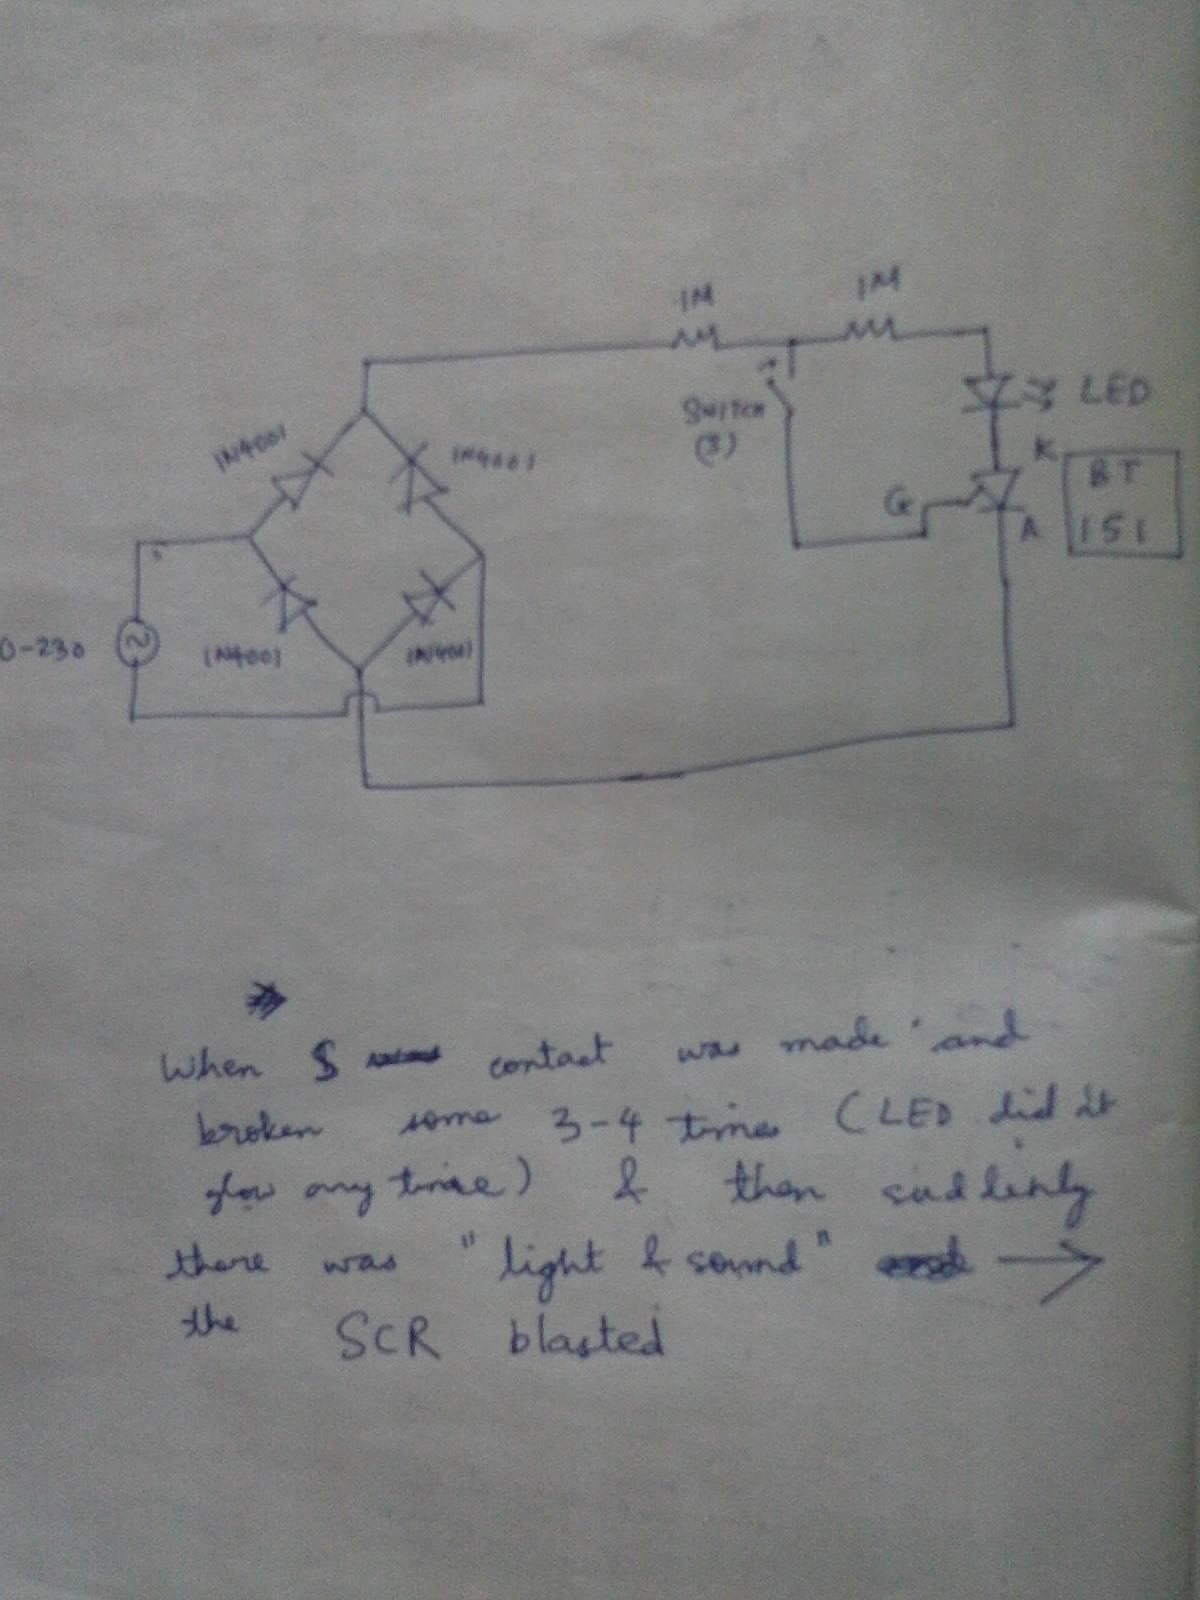 1M
1M
SWITCH
(S)
LED
K
BT
151
G
A
1N4001
1N4001
0-230
1N4001
1N4001
When S contact was made and
broken some 3-4 times (LED did it
glow any time) & then suddenly
there was "light & sound"
the SCR blasted